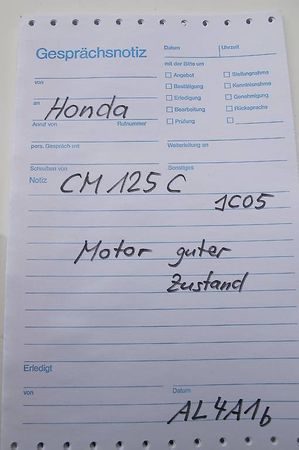 Gesprächsnotiz
Datum
Uhrzeit
mit der Bitte um
von
Angebot
Stellungnahme
Bestätigung
Kenntnisnahme
an
Erledigung
Genehmigung
Honda
Bearbeitung
Rücksprache
Anruf von
Rufnummer
Prüfung
pers. Gespräch mit
Weiterleitung an
Schreiben von
Sonstiges
Notiz
CM 125 C
JC05
Motor guter
Zustand
Erledigt
von
Datum
AL4A1b